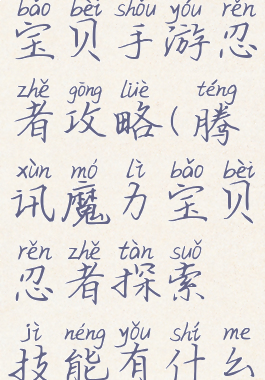 bǎo bèi shǒu yóu rěn
宝贝手游忍
zhě gōng lüè téng
者攻略(腾
xùn mó lì bǎo bèi
讯魔力宝贝
rěn zhě tàn suǒ
忍者探索
jì néng yǒu shí me
技能有什么